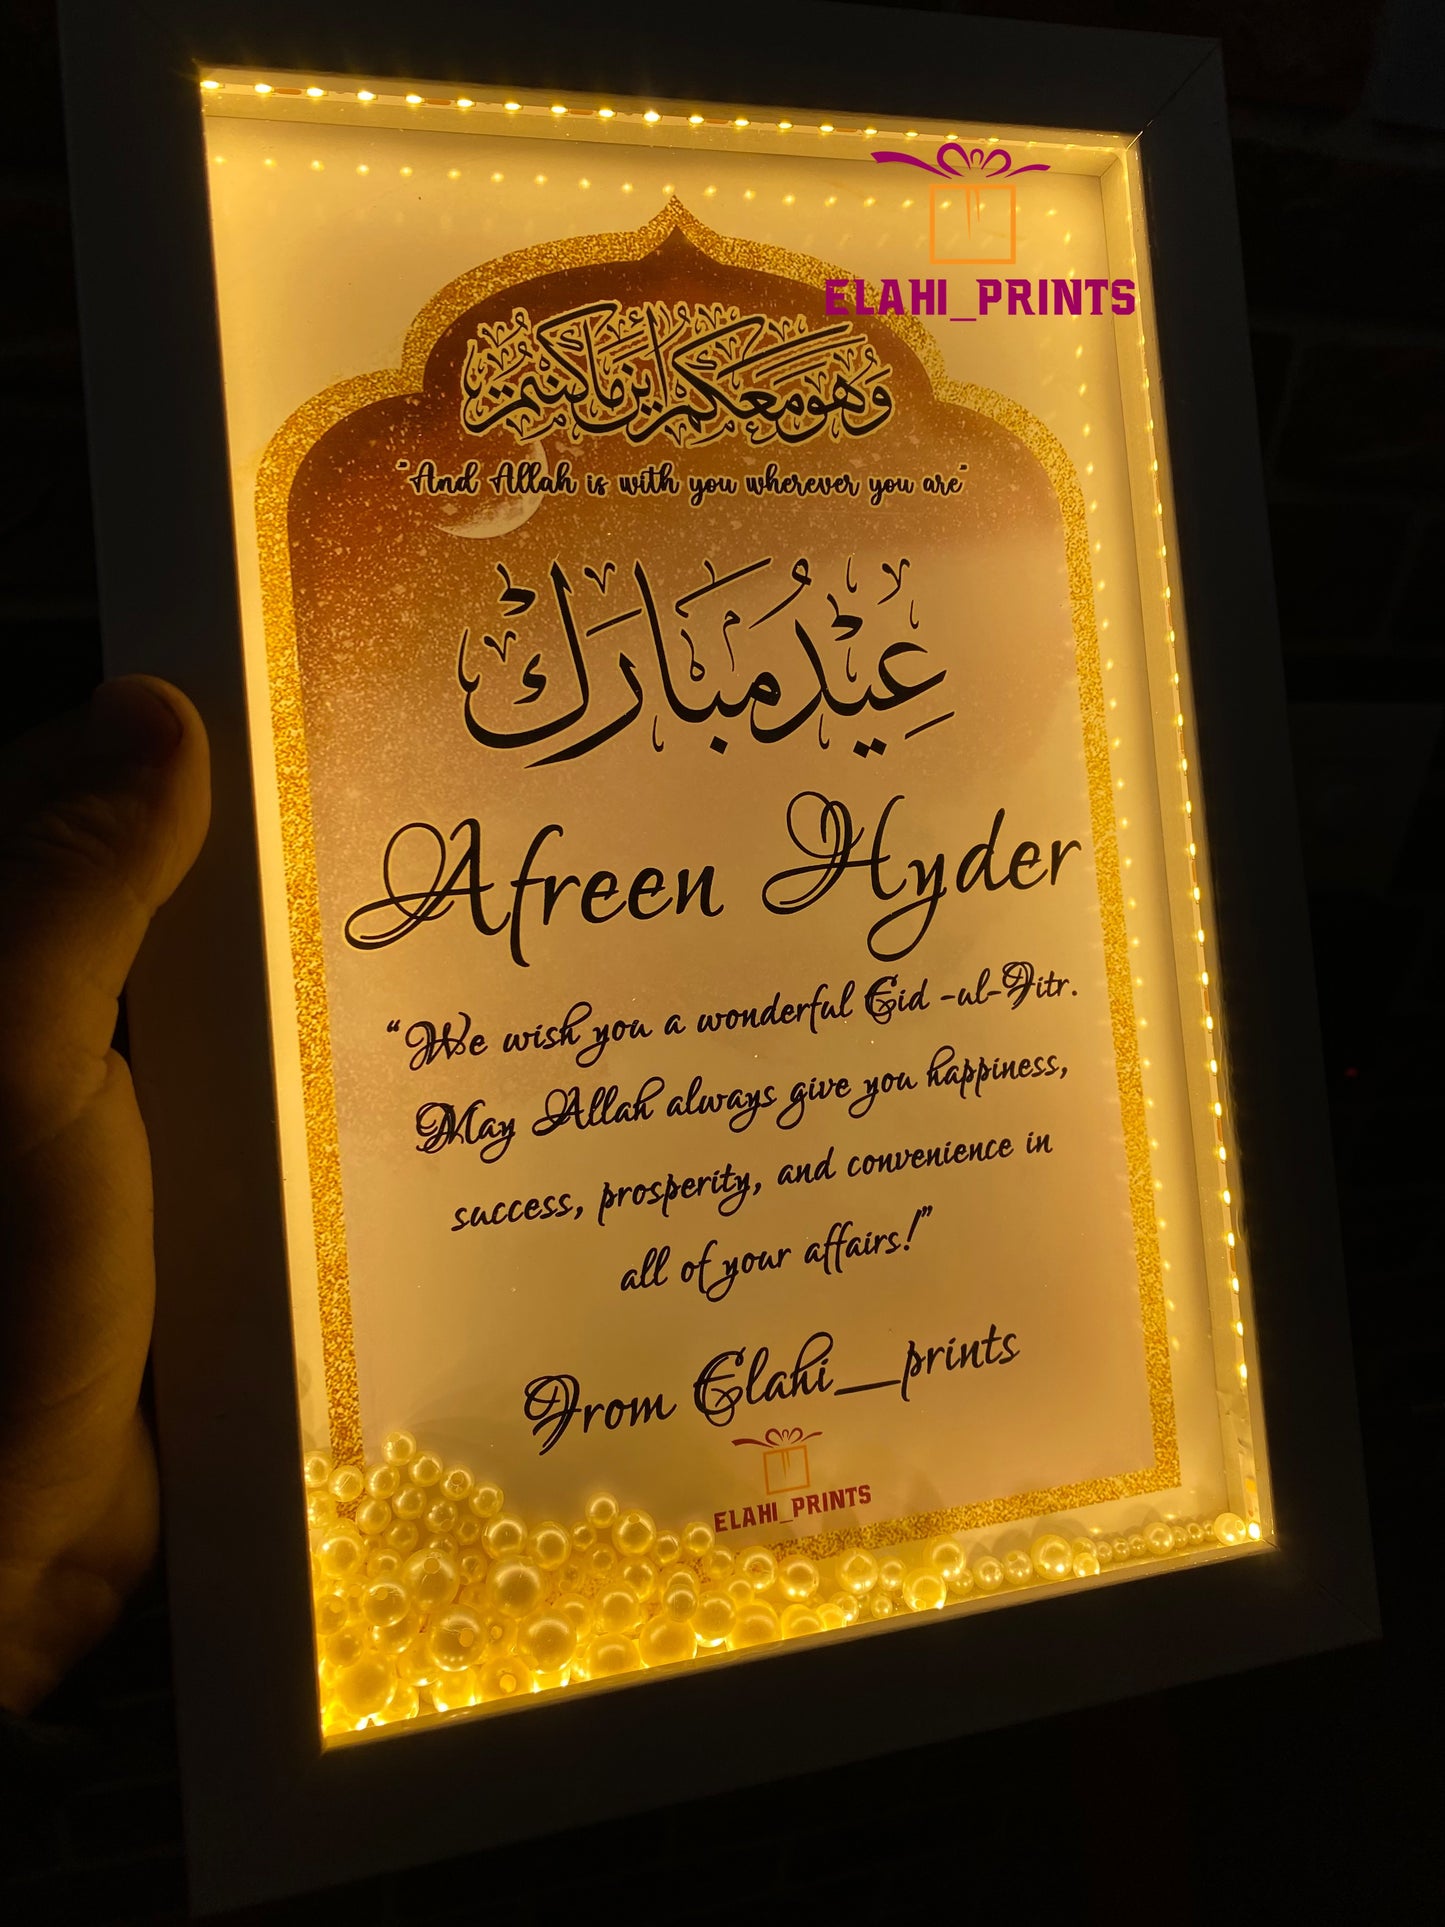 ELAHI_PRINTS
وَهُوَ مَعَكُمْ أَيْنَ مَا كُنتُمْ
"And Allah is with you wherever you are"
عِيدُ مُبَارَك
Afreen Hyder
“We wish you a wonderful Eid -ul-Fitr.
May Allah always give you happiness,
success, prosperity, and convenience in
all of your affairs!”
From Elahi__prints
ELAHI_PRINTS